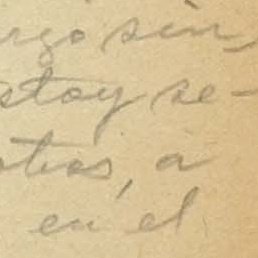 rgo sin-
stoy se-
otras, a
en el